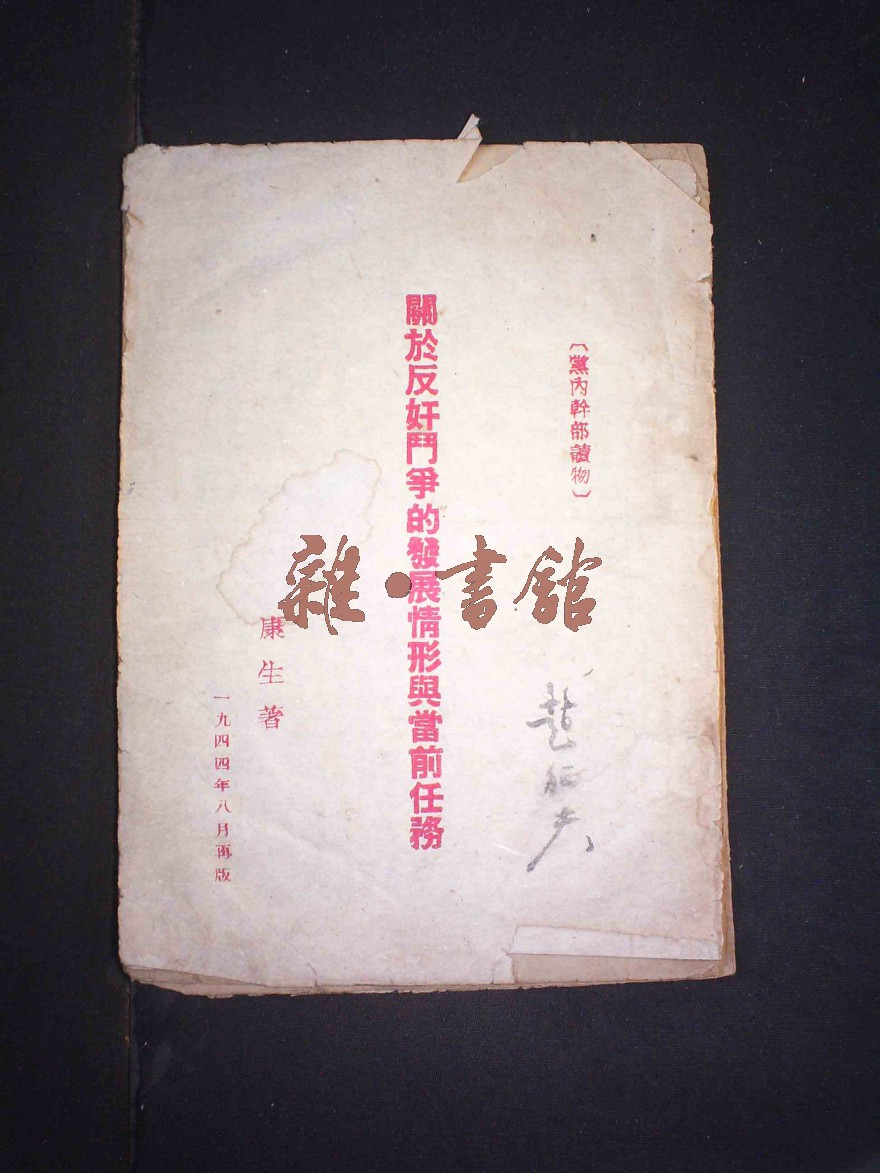 〔黨內幹部讀物〕
關於反奸鬥爭的發展情形與當前任務
康生著
一九四四年八月再版
雜·書館